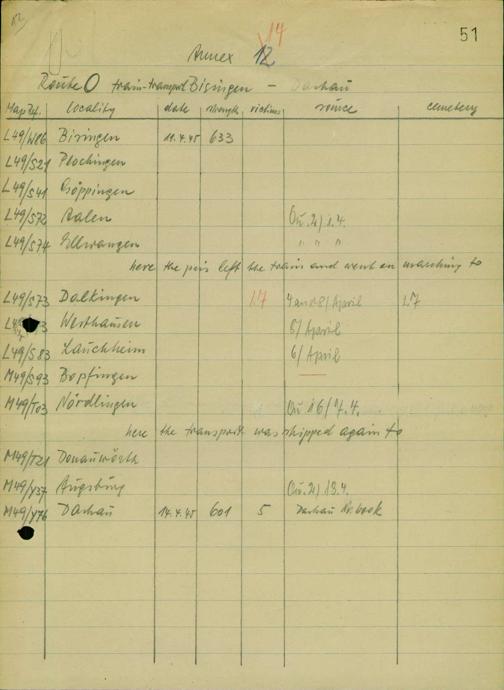 51
14
Annex 12
Route O train-transport Bisingen - Dachau
Map Ref. locality date strength victims source cemetery
L49/W86 Bisingen 14.4.45 633
L49/S21 Plochingen
L49/S41 Göppingen
L49/S72 Aalen Qu. 2/1.4.
L49/S74 Ellwangen " " "
here the pris left the train and went on marching to
L49/S73 Dalkingen 17 4 and 8/April 17
Westhausen 5/April
L49/S83 Lauchheim 6/April
M49/S93 Bopfingen
M49/T03 Nördlingen Qu 16/7.4.
here the transport was shipped again to
M49/T21 Donauwörth
M49/Y37 Augsburg Qu. 2/13.4.
M49/Y76 Dachau 14.4.45 601 5 Dachau book